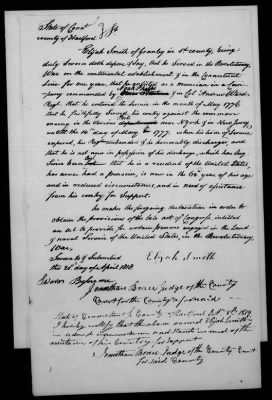 State of Cont
county of Hartford } Ss
Elijah Smith of Granby in sd county, being
duly Sworn doth depose & say, that he Served in the Revolutionary
War on the continental establishment & in the Connecticut
line for one year, that he enlisted as a musician in a Com-
pany commanded by in Col Andrew Ward's
Regt. that he entered the Service in the month of May 1776
that he faithfully Served his country against the common
enemy in the New York & in New Jersey
until the 14th day of May 1777. when his term of Service
expired, his Regt disbanded & he honorably discharged; and
that he is not now in possession of his discharge, which has long
Since been lost, that he is a resident of the United States,
has never had a pension, is now in the 60th year of his age
and in reduced circumstances, and in need of assistance
from his country for Support.
he makes the foregoing declaration in order to
obtain the provisions of the late act of Congress, intitled
an Act to provide for certain persons engaged in the Land
& naval Service of the United States, in the Revolutionary
War,
Sworn to & Subscribed
this 28 day of April 1818. Elijah Smith
Sworn Before me
Jonathan Brace Judge of the County
Court for the County aforesaid
State of Connecticut County of Hartford 1819
I hereby certify that the above named Elijah Smith is
in reduced circumstances and stands in need of the
assistance of his Country for support
Jonathan Brace Judge of the County Court
for said County